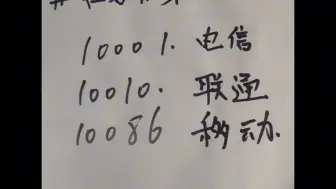 10001. 电信
10010. 联通
10086 移动.